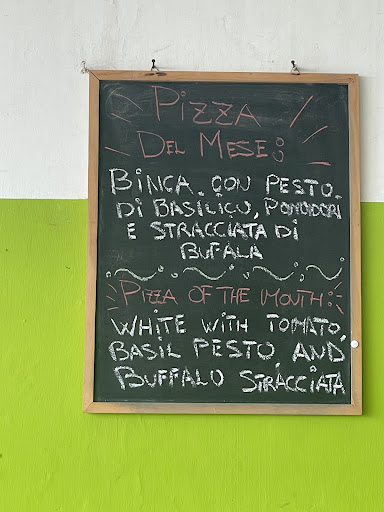 PIZZA
DEL MESE:
BINCA CON PESTO
DI BASILICO, POMODORI
E STRACCIATA DI
BUFALA
PIZZA OF THE MOUTH:
WHITE WITH TOMATO,
BASIL PESTO AND
BUFFALO STRACCIATA